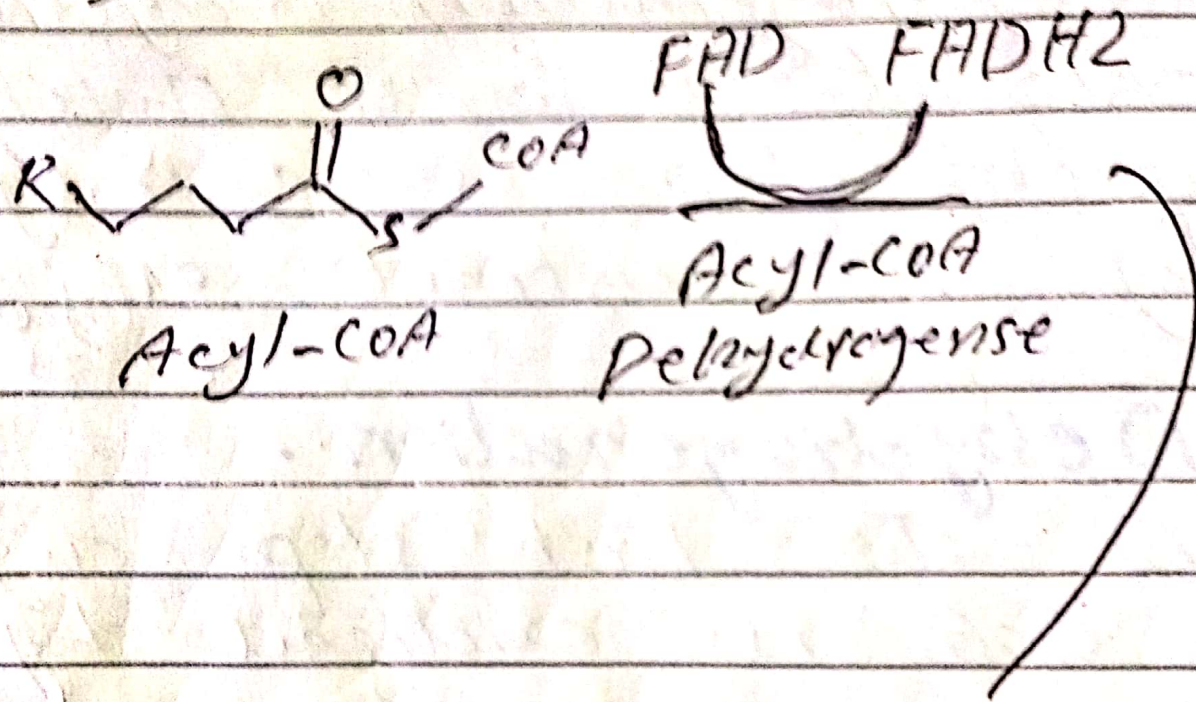 FAD FADH2
O
R S CoA
Acyl-CoA
Acyl-CoA
Dehydrogense